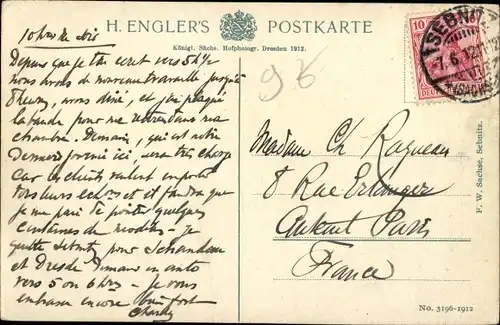 H. ENGLER'S POSTKARTE
Königl. Sächs. Hofphotogr. Dresden 1912.
10
SEBNITZ
7.6.12
(SACHSEN)
96
10 heures du soir
Depuis que je t'ai écrit vers 5h ½
nous avons de nouveau travaillé jusqu'à
8 heures, avons diné, et j'ai plaqué
la bande pour me retirer dans ma
chambre. Demain, qui est notre
dernière journée ici, sera très chargé
car les clients veulent emporter
tous leurs echons et il faudra que
je me paie de pointer quelques
centaines de modèles - je
quitte Sebnitz pour Schandau
et Dresde Demain en auto
vers 5 ou 6 hrs - je vous
embrasse encore bien fort
Charly
Madame Ch Raqueau
8 Rue Erlanger
Auteuil Paris
France
F. W. Sachse, Sebnitz.
No. 3196-1912